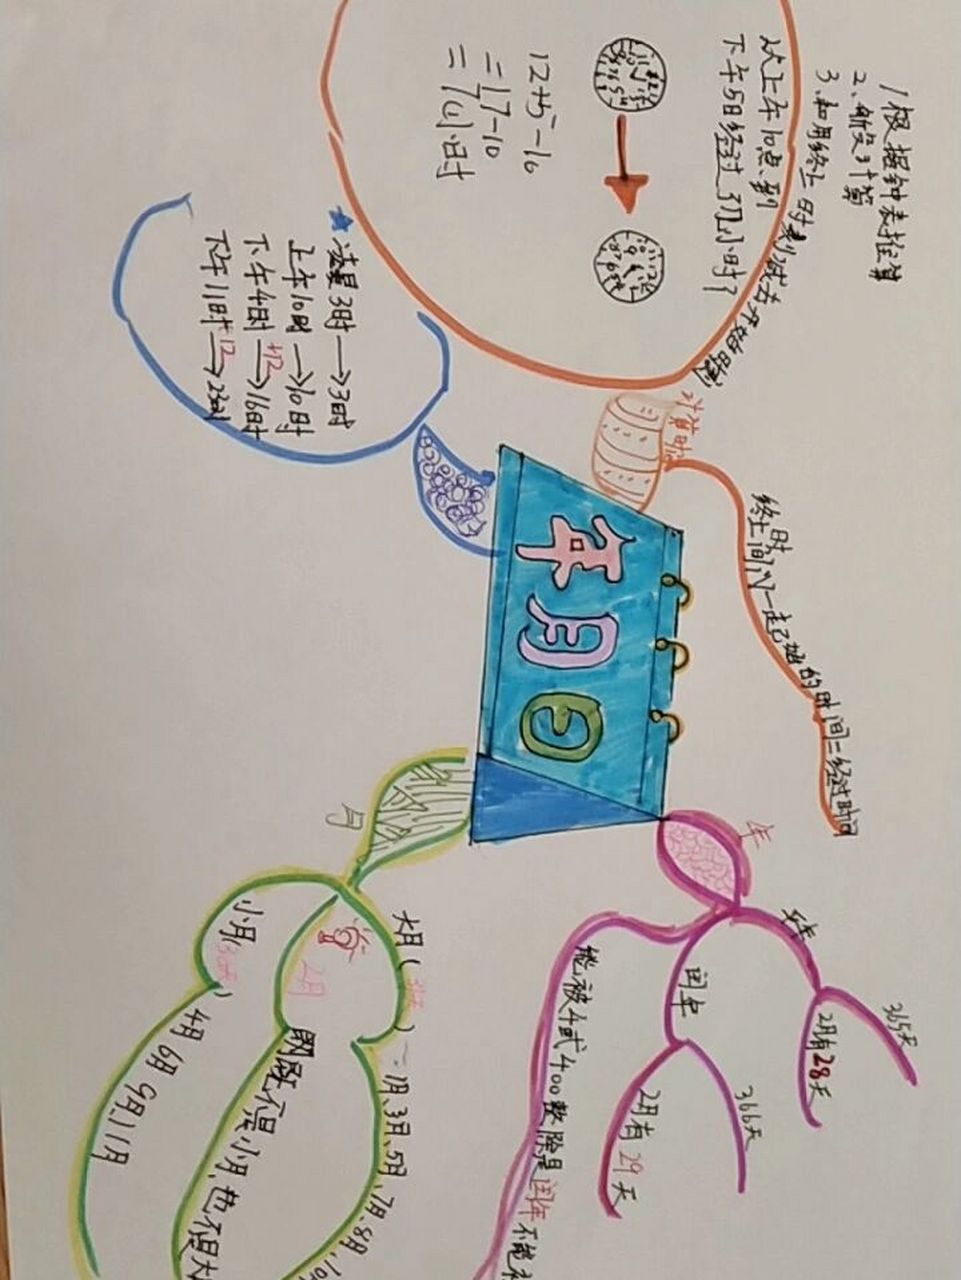 年月日
1、根据钟表推算
2、分段计算
3、利用终止时刻减去开始时刻
从上午10点到
下午5日经过了几小时?
12+5-10
=17-10
=7(小)时
计算时间
终止时间 - 起始的时间=经过时间
凌晨3时→3时
上午10时→10时
下午4时 +12→16时
下午11时 +12→23时
年
平年
365天
2月有28天
闰年
366天
2月有29天
能被4或400整除是闰年不能被
月
大月(31天)
1月、3月、5月、7月、8月、10
2月
既不是小月,也不是大
小月(30天)
4月 6月 9月、11月